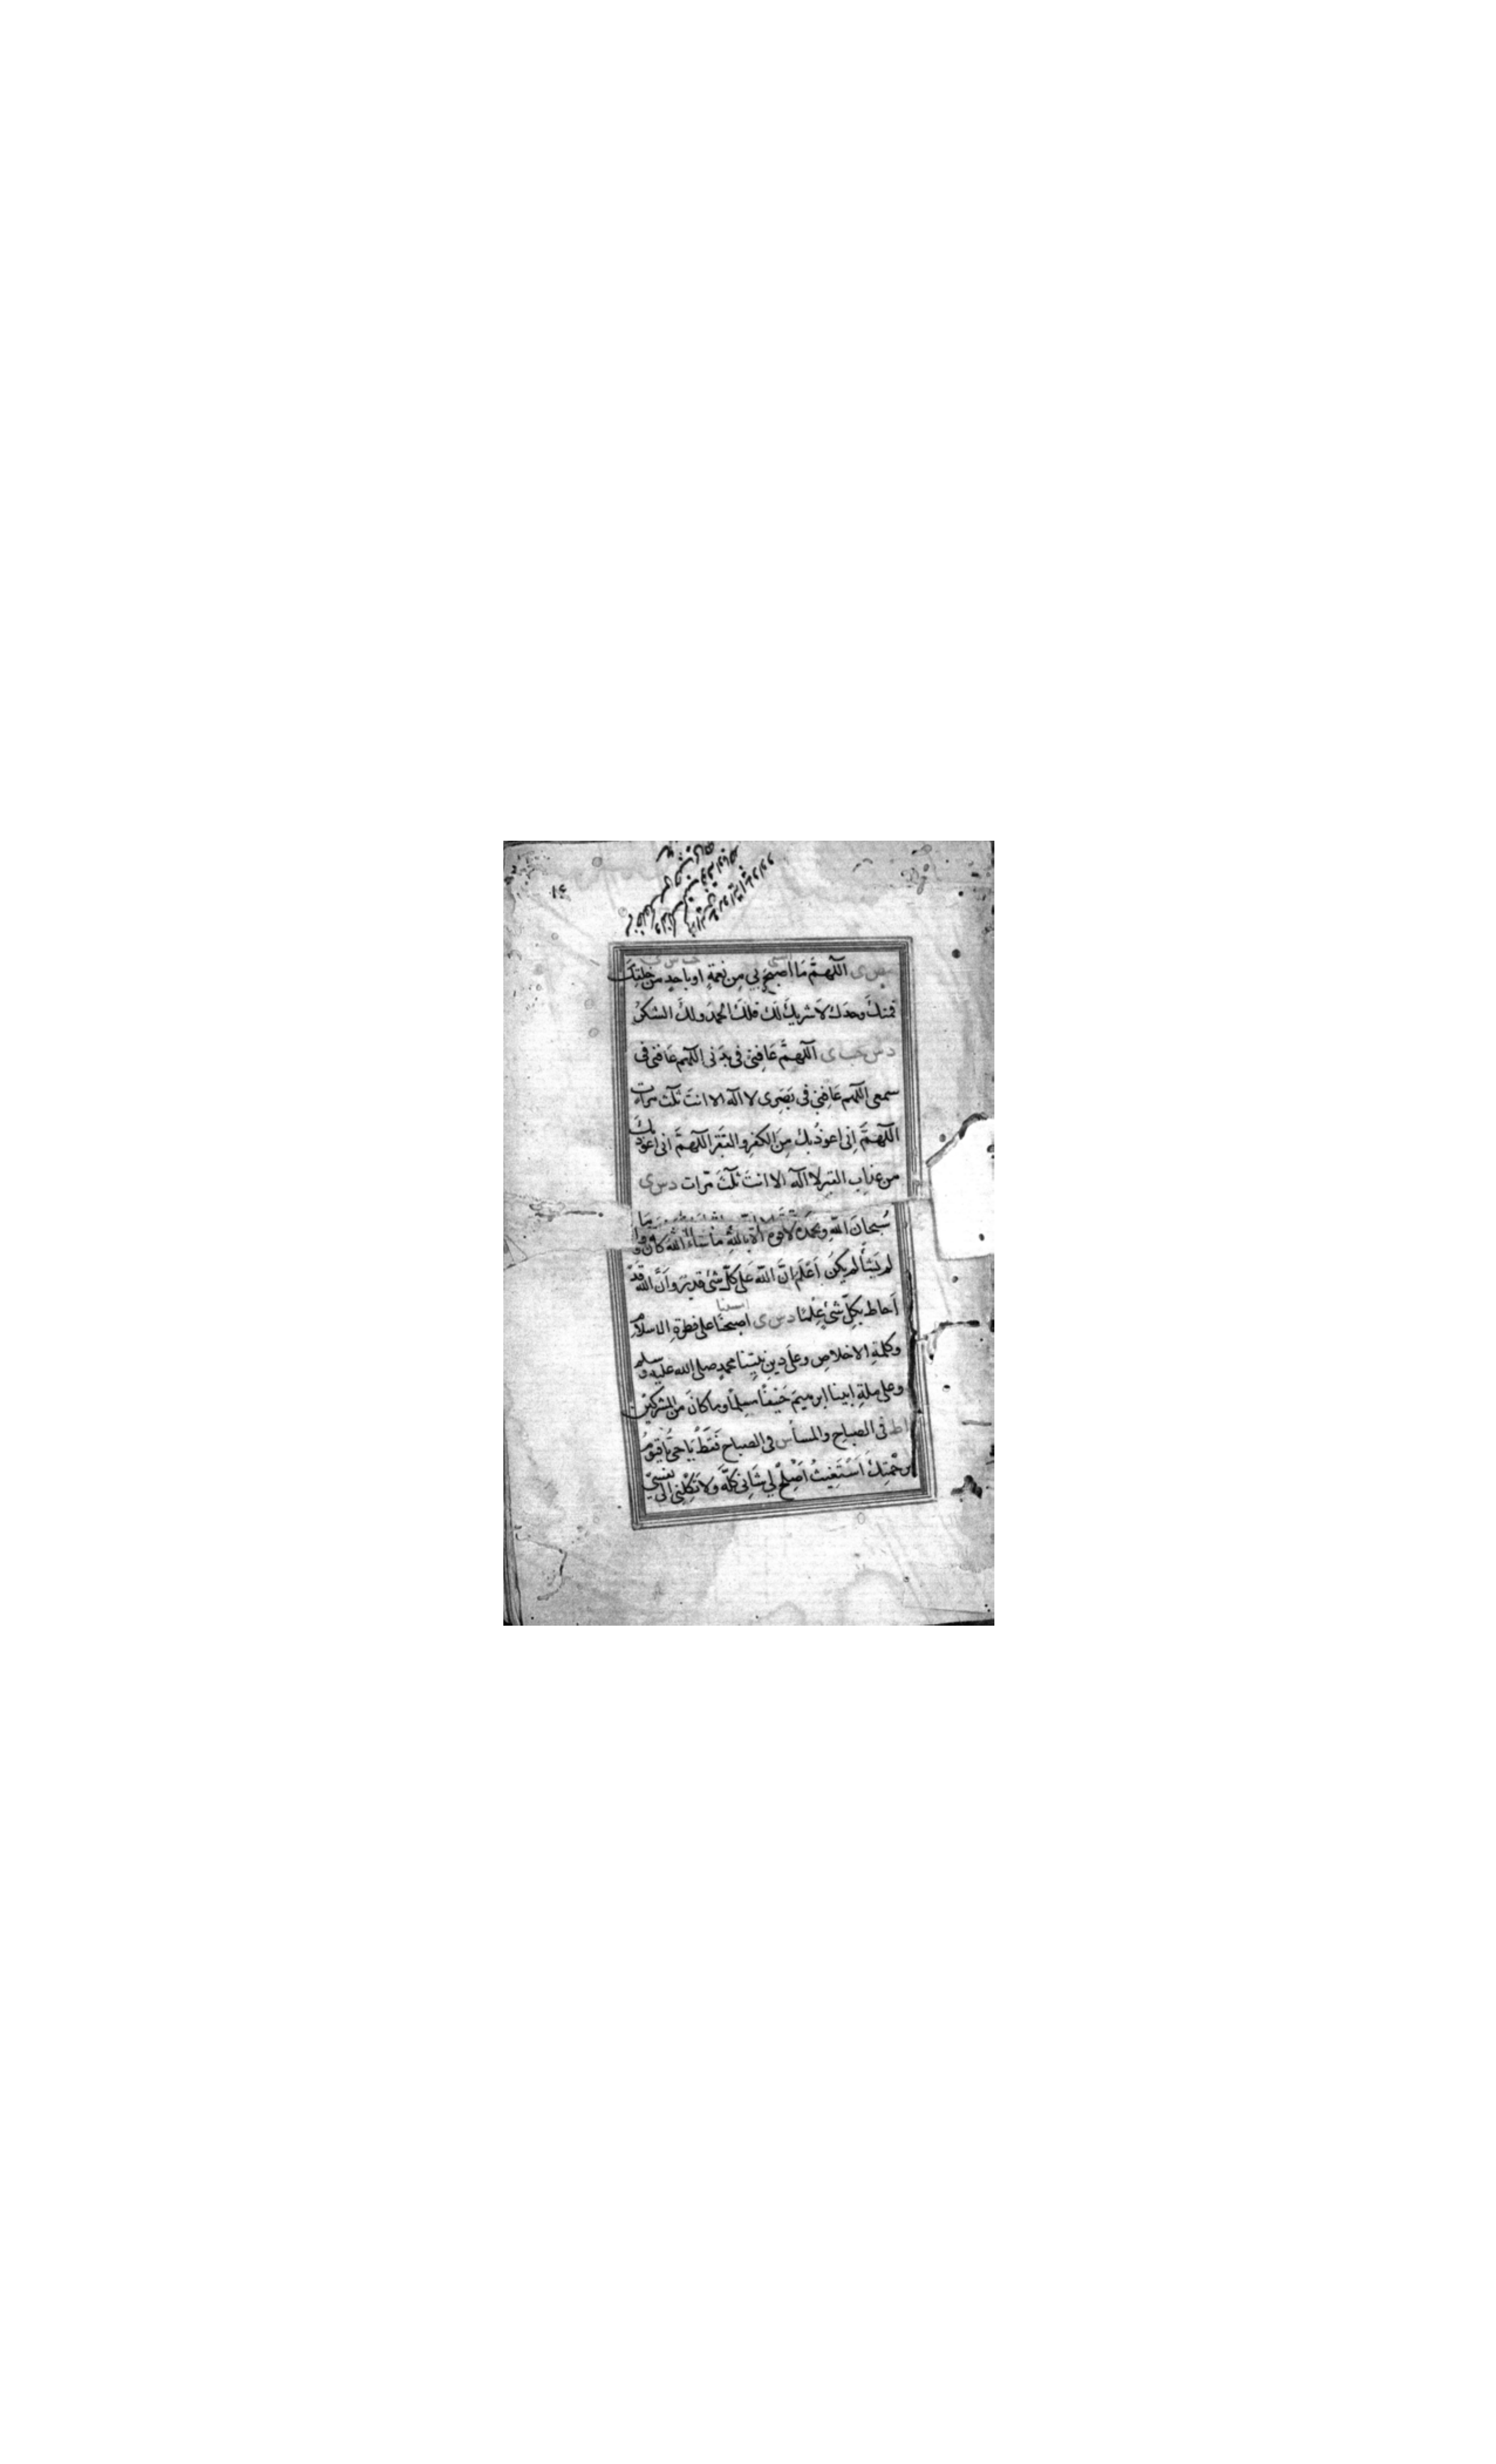 اللهمَّ مَا اصبَحَ بي مِن نعمةٍ او باحدٍ من خلقِكَ
فمنكَ وحدَكَ لاَ شريكَ لَكَ فلكَ الحمدُ ولكَ الشكرُ
د س ى اللهمَّ عَافِنِى فى بَدَنى اللهم عافنى فى
سمعى اللهم عَافِنِى فى بَصَرِى لا اله الا انتَ ثلثَ مرات
اللهمَّ اِنى اعوذُ بكَ مِنَ الكفرِ والفَقرِ اللهمَّ انى اعوذ بكَ
من عذابِ القبرِ لا اله الا انتَ ثلثَ مَرات د س ى
سُبحانَ اللهِ وبحمدِه لا قوة الا باللهِ ما شاءَ اللهُ كانَ وما
لم يَشأ لم يكن اَعْلَم اَنَّ اللهَ عَلى كلِّ شئٍ قديرٌ واَنَّ اللهَ قَدْ
اَحاط بكلِّ شئٍ عِلْمًا د س ى اصبحنَا على فطرةِ الاسلام
امسينا
وكلمةِ الاخلاصِ وعلَى دينِ نبيِّنا محمدٍ صلى الله عليه وسلم
وعلى ملةِ ابينا ابرهيمَ حَنِيفًا مسلمًا وما كانَ مِنَ المشركينَ
ا ط فى الصباحِ والمساءِ س فى الصباحِ فَقَطْ يَا حىُّ يَا قيّومُ
برحمتِكَ اَسْتَغِيثُ اَصْلِحْ لِى شَانِى كلَّهُ ولا تَكِلْنِى اِلى نفسِى